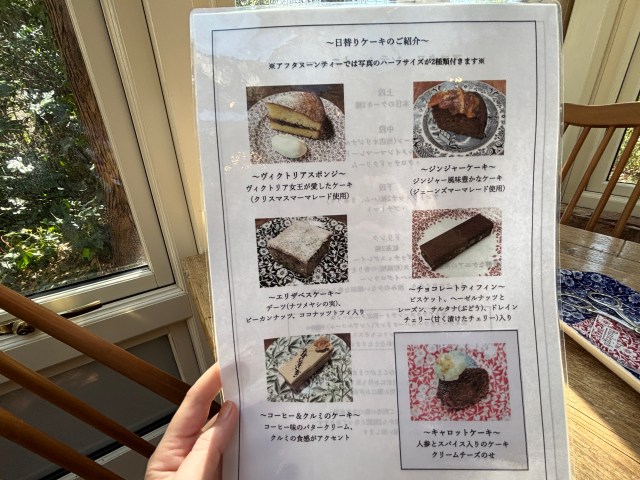 ～日替りケーキのご紹介～
※アフタヌーンティーでは写真のハーフサイズが2種類付きます※
～ヴィクトリアスポンジ～
ヴィクトリア女王が愛したケーキ
（クリスマスマーマレード使用）
～ジンジャーケーキ～
ジンジャー風味豊かなケーキ
（ジェーンズマーマレード使用）
～エリザベスケーキ～
デーツ(ナツメヤシの実)、
ピーカンナッツ、ココナッツトフィ入り
～チョコレートティフィン～
ビスケット、ヘーゼルナッツと
レーズン、サルタナ(ぶどう)、ドレイン
チェリー(甘く漬けたチェリー)入り
～コーヒー＆クルミのケーキ～
コーヒー味のバタークリーム、
クルミの食感がアクセント
～キャロットケーキ～
人参とスパイス入りのケーキ
クリームチーズのせ